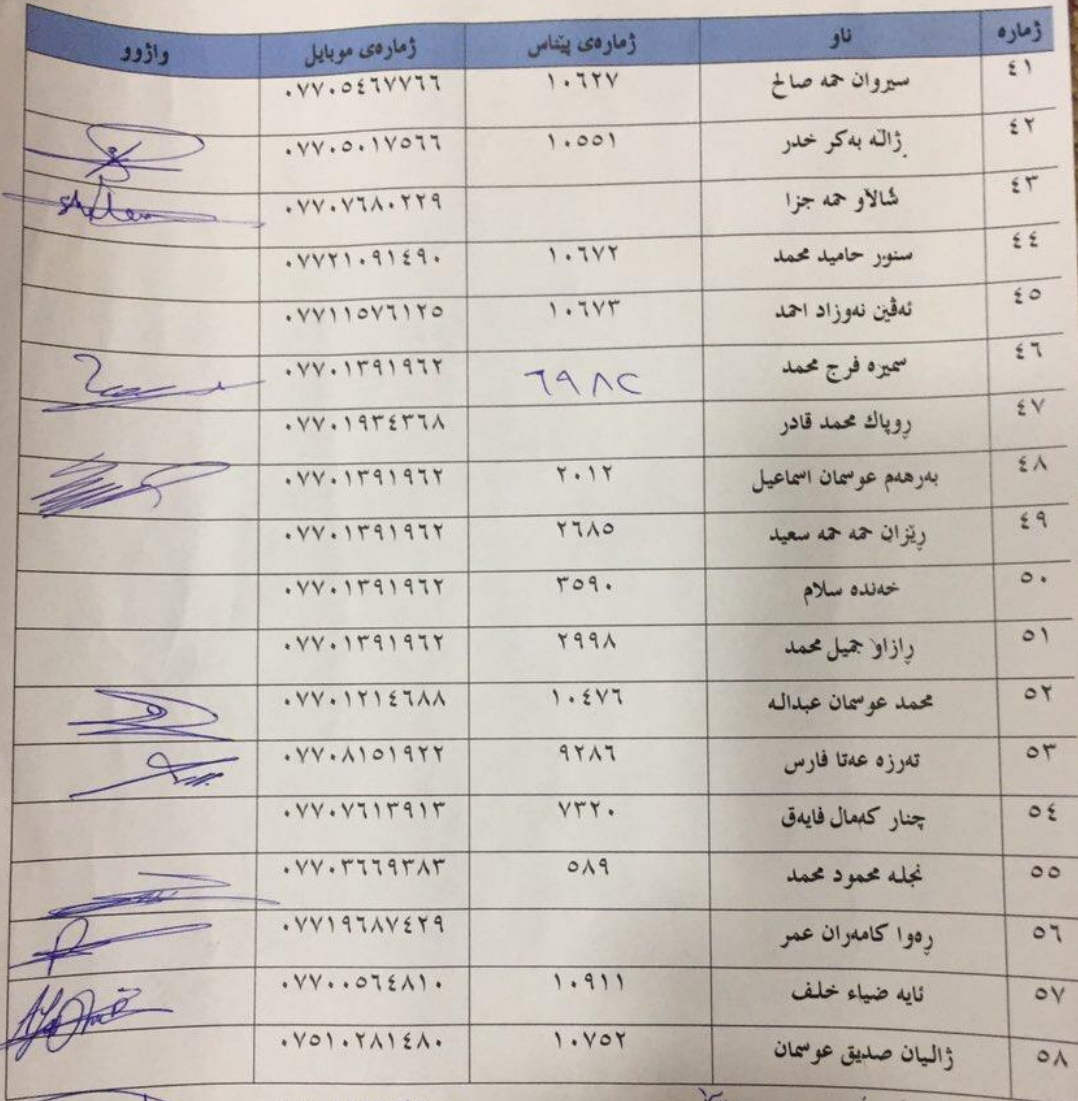 ژمارە ناو ژمارەی پێناس ژمارەی موبایل واژوو
٤١ سيروان حمه صالح ١٠٦٢٧ ٠٧٧٠٥٤٦٧٧٦٦
٤٢ ژاڵه بەكر خدر ١٠٥٥١ ٠٧٧٠٥٠١٧٥٦٦
٤٣ شالاو حمه جزا ٠٧٧٠٧٦٨٠٢٢٩
٤٤ سنور حامید محمد ١٠٦٧٢ ٠٧٧٢١٠٩١٤٩٠
٤٥ ئەڤین نەوزاد احمد ١٠٦٧٣ ٠٧٧١١٥٧٦١٢٥
٤٦ سمیره فرج محمد ٦٩٨٢ ٠٧٧٠١٣٩١٩٦٢
٤٧ ڕوپاك محمد قادر ٠٧٧٠١٩٣٤٣٦٨
٤٨ بەرهەم عوسمان اسماعیل ٢٠١٢ ٠٧٧٠١٣٩١٩٦٢
٤٩ ڕێزان حمه حمه سعید ٢٦٨٥ ٠٧٧٠١٣٩١٩٦٢
٥٠ خەنده سلام ٣٥٩٠ ٠٧٧٠١٣٩١٩٦٢
٥١ ڕازاو جمیل محمد ٢٩٩٨ ٠٧٧٠١٣٩١٩٦٢
٥٢ محمد عوسمان عبداله ١٠٤٧٦ ٠٧٧٠١٢١٤٦٨٨
٥٣ تەرزه عەتا فارس ٩٢٨٦ ٠٧٧٠٨١٥١٩٢٢
٥٤ چنار كەمال فایەق ٧٣٢٠ ٠٧٧٠٧٦١٣٩١٣
٥٥ نجله محمود محمد ٥٨٩ ٠٧٧٠٣٦٦٩٣٨٣
٥٦ ڕەوا كامەران عمر ٠٧٧١٩٦٨٧٤٢٩
٥٧ ئایه ضیاء خلف ١٠٩١١ ٠٧٧٠٠٥٦٤٨١٠
٥٨ ژالیان صدیق عوسمان ١٠٧٥٢ ٠٧٥١٠٢٨١٤٨٠